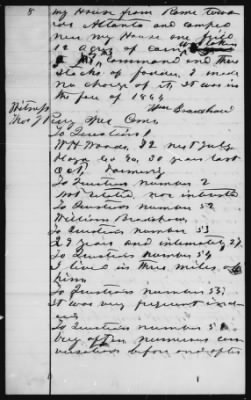 8 my House from Rome towa
rds Atlanta and camped
near my House one field
12 acres of corn
command and three
stacks of fodder, I made
no charge of it, It was in
the year of 1864
Wm Bradshaw
Witness
To Question 1
W H Woods, 32 next July
Floyd Co Ga, 30 years last
Oct, Farming
To Question number 2
not related, nor interested
To Question number 52
William Bradshaw
To Question number 53
29 years and intimately 27
To Question number 54
I lived in three miles of
him
To Question number 55
It was very frequent
To Question number 5
very often numerous con
versations before and after